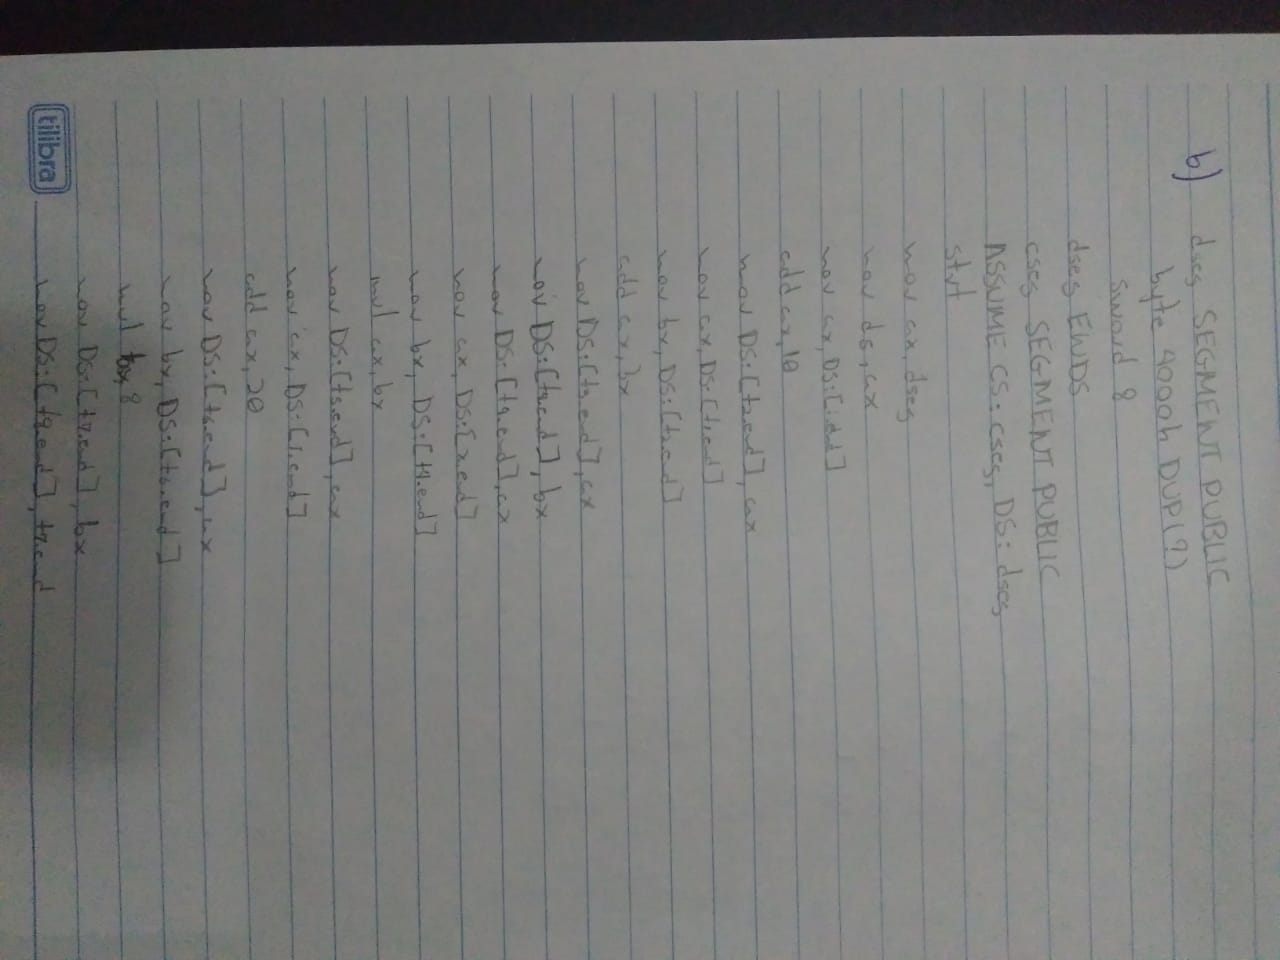 b) dseg SEGMENT PUBLIC
byte 4000h DUP(?)
sword 8
dseg ENDS
cseg SEGMENT PUBLIC
ASSUME CS: cseg, DS: dseg
strt
mov ax, dseg
mov ds, ax
mov ax, DS:[i.end]
add ax, 10
mov DS:[t2.end], ax
mov ax, DS:[t1.end]
mov bx, DS:[t2.end]
add ax, bx
mov DS:[t3.end], ax
mov DS:[t2.end], bx
mov DS:[t4.end], ax
mov ax, DS:[x.end]
mov bx, DS:[t4.end]
mul ax, bx
mov DS:[t5.end], ax
mov ax, DS:[1.end]
add ax, 20
mov DS:[t6.end], ax
mov bx, DS:[t6.end]
mul 8
mov DS:[t7.end], bx
mov DS:[t8.end], t7.end
tilibra